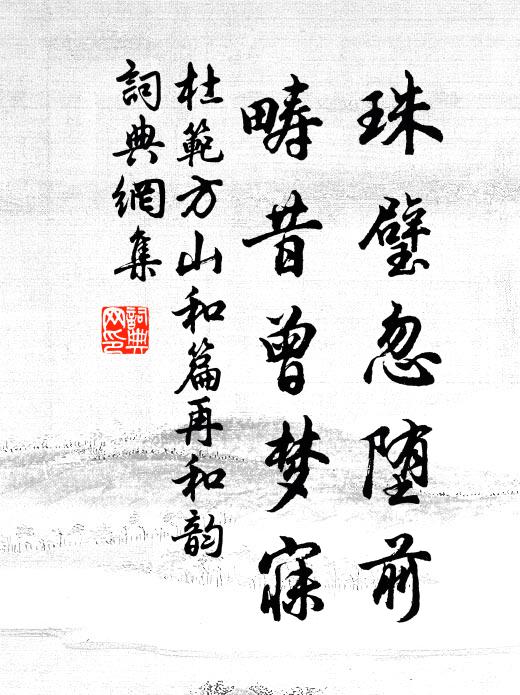 珠璧忽堕前
畴昔曾梦寐
杜範方山和篇再和韵
詞典網集
詞典网印